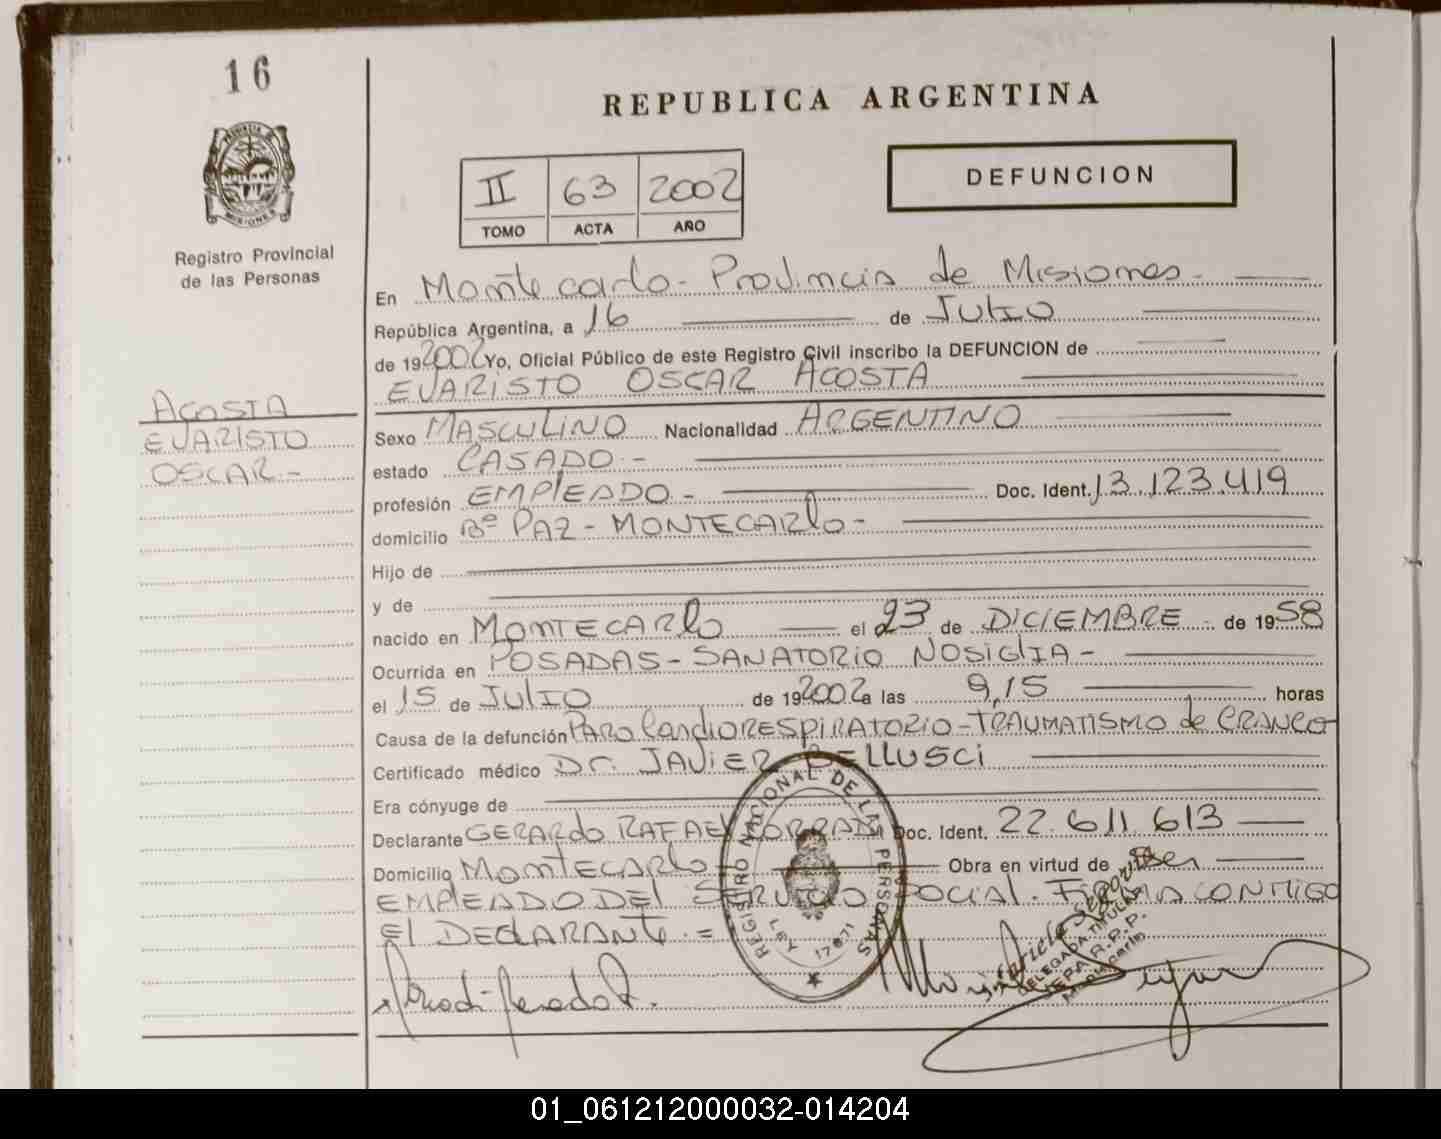 16
REPUBLICA ARGENTINA
PROVINCIA DE
MISIONES
Registro Provincial
de las Personas
II 63 2002
TOMO ACTA AÑO
DEFUNCION
En Montecarlo - Provincia de Misiones -
República Argentina, a 16 de JULIO
de 192002 Yo, Oficial Público de este Registro Civil inscribo la DEFUNCION de
EVARISTO OSCAR ACOSTA
ACOSTA
EVARISTO
OSCAR -
Sexo MASCULINO Nacionalidad ARGENTINO
estado CASADO -
profesión EMPLEADO - Doc. Ident. 13.123.419
domicilio Bº PAZ - MONTECARLO -
Hijo de
y de
nacido en MONTECARLO el 23 de DICIEMBRE de 1958
Ocurrida en POSADAS - SANATORIO NOSIGLIA -
el 15 de JULIO de 192002 a las 9,15 horas
Causa de la defunción PARO CardIORESPIRATORIO - TRAUMATISMO de CRANEO
Certificado médico Dr. JAVIER BELLUSCI
Era cónyuge de
Declarante GERARDO RAFAEL Doc. Ident. 22.611.613
Domicilio MONTECARLO Obra en virtud de ser
EMPLEADO DEL SERVICIO SOCIAL. FIRMA CONMIGO
El DECLARANTE. =
REGISTRO NACIONAL DE LAS PERSONAS
LEY 17671
DELEGADA TITULAR
R.P.P.
Montecarlo
01_061212000032-014204